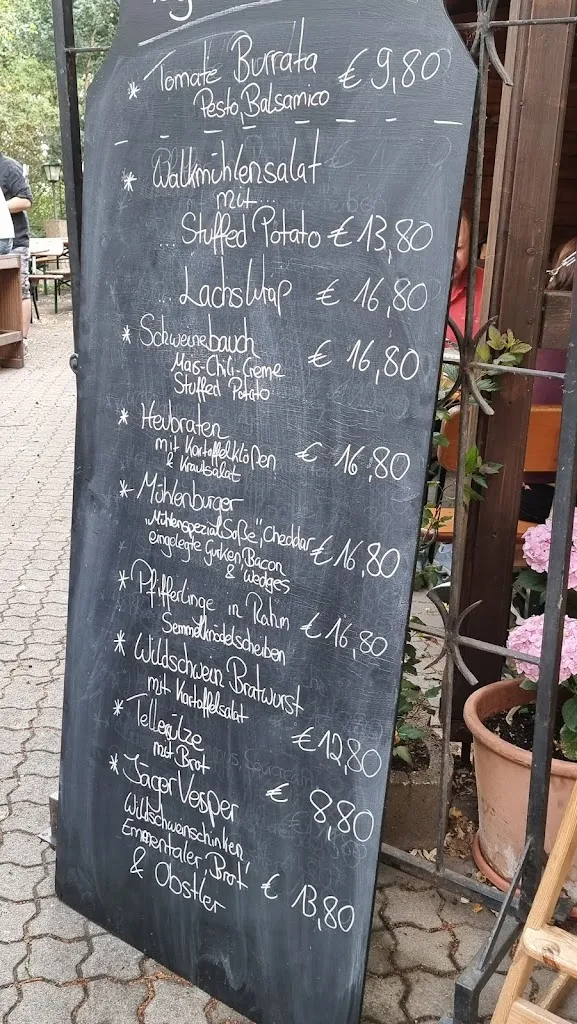 * Tomate Burrata € 9,80
Pesto, Balsamico
* Walkmühlensalat
mit...
... Stuffed Potato € 13,80
... Lachs Wrap € 16,80
* Schweinebauch € 16,80
Mais-Chili-Creme
Stuffed Potato
* Heubraten € 16,80
mit Kartoffelklößen
& Krautsalat
* Mühlenburger
„Mühlenspezial Soße", Cheddar € 16,80
eingelegte Gurken, Bacon
& Wedges
* Pfifferlinge in Rahm € 16,80
Semmelknödelscheiben
* Wildschwein Bratwurst
mit Kartoffelsalat € 12,80
* Tellersülze
mit Brot € 8,80
* Jäger Vesper
Wildschweinschinken,
Emmentaler, Brot € 13,80
& Obstler